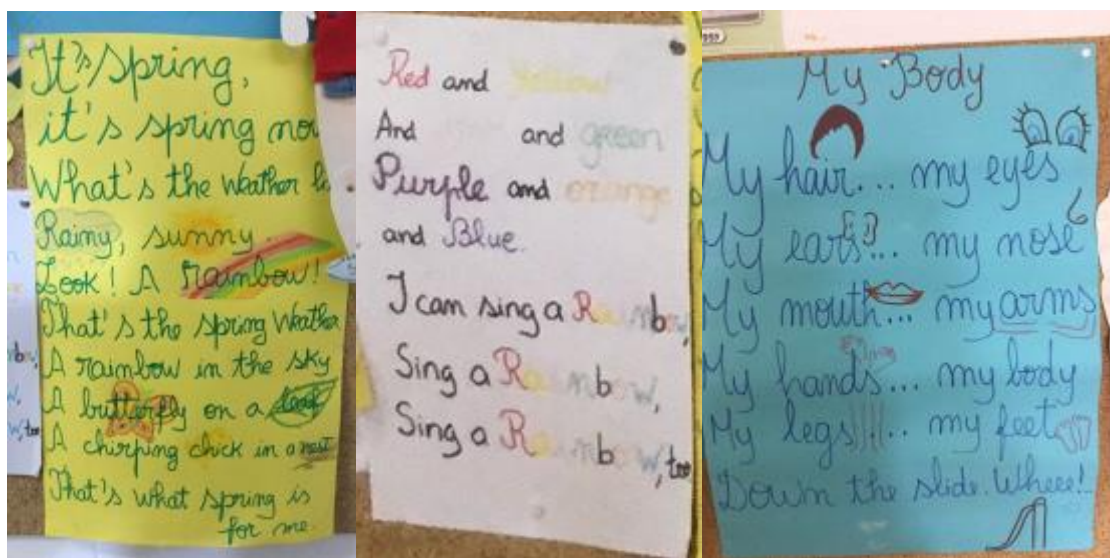 It's spring,
it's spring now
What's the weather li
Rainy, sunny.
Look! A rainbow!
That's the spring weather
A rainbow in the sky
A butterfly on a leaf
A chirping chick in a nest
That's what spring is
for me.
Red and Yellow
And and green
Purple and orange
and Blue.
I can sing a Rainbow,
Sing a Rainbow,
Sing a Rainbow, too
My Body
My hair... my eyes
My ears... my nose
My mouth... my arms
My hands... my body
My legs... my feet
Down the slide. Wheee!